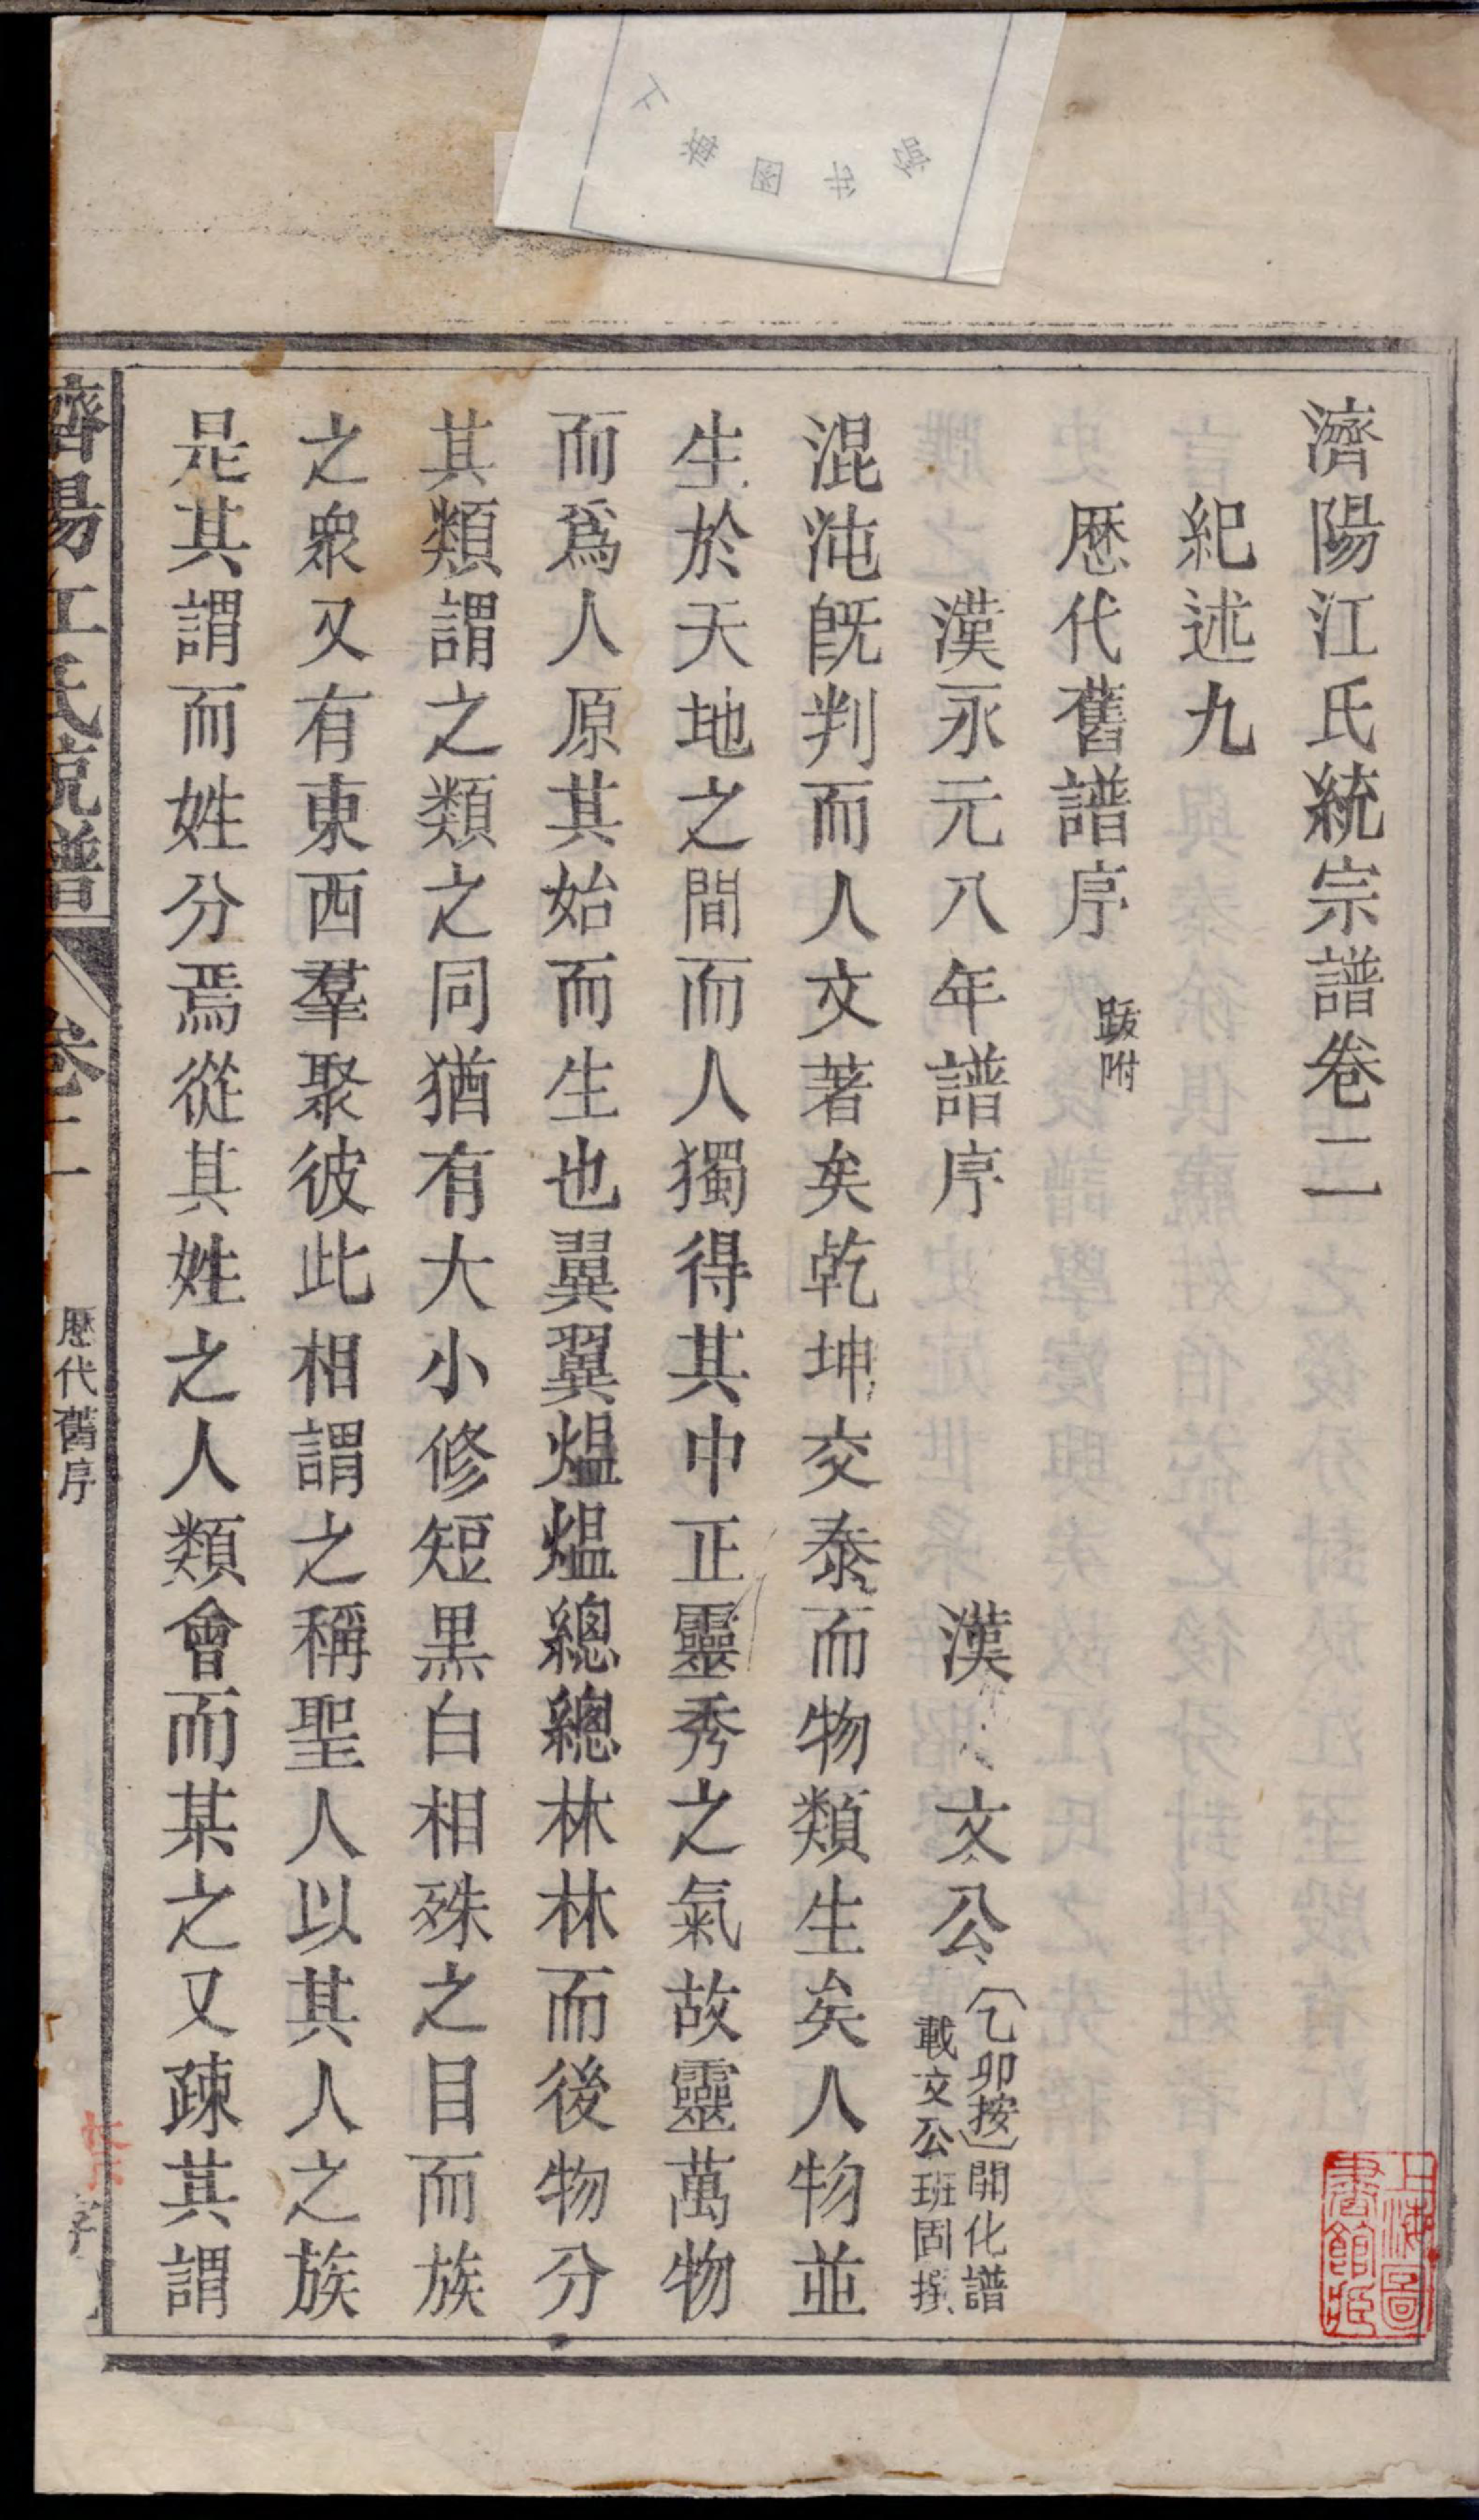 濟陽江氏統宗譜卷二
紀述九
歷代舊譜序 跋附
漢永元八年譜序 漢 文公 〔乙卯按〕開化譜載文公班固撰
混沌旣判而人文著矣乾坤交泰而物類生矣人物並
生於天地之間而人獨得其中正靈秀之氣故靈萬物
而爲人原其始而生也翼翼熅熅總總林林而後物分
其類謂之類之同猶有大小修短黑白相殊之目而族
之衆又有東西羣聚彼此相謂之稱聖人以其人之族
是其謂而姓分焉從其姓之人類會而某之又疎其謂
濟陽江氏統譜 卷二 歷代舊序
上海圖書館藏